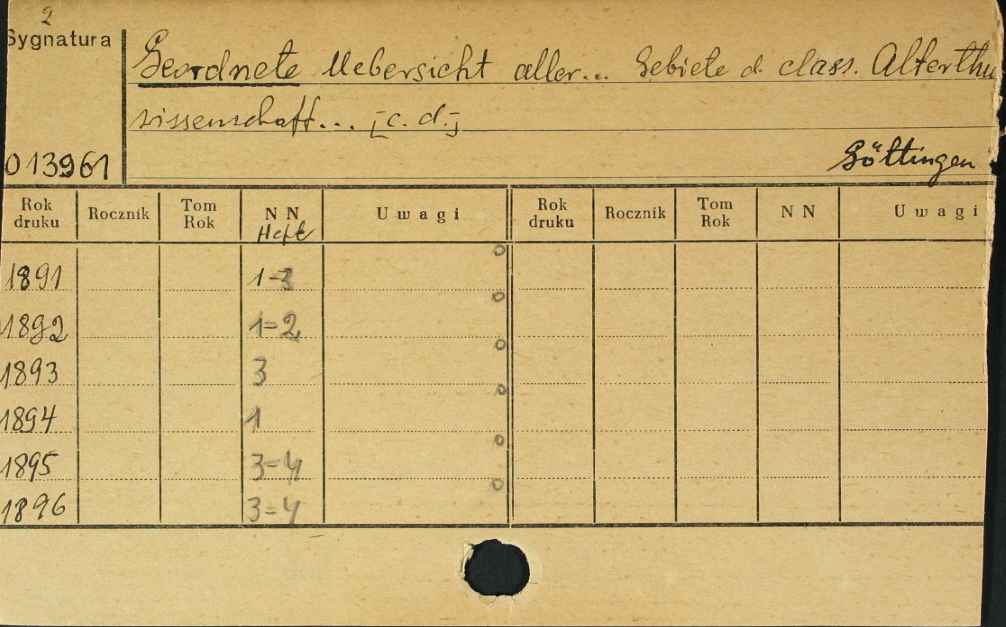 2
Sygnatura
Geordnete Uebersicht aller... Gebiete d. class. Alterthu
wissenschaft... [c. d.]
013961
Göttingen
Rok druku Rocznik Tom Rok NN Heft Uwagi Rok druku Rocznik Tom Rok NN Uwagi
1891 1-3
1892 1=2
1893 3
1894 1
1895 3=4
1896 3=4